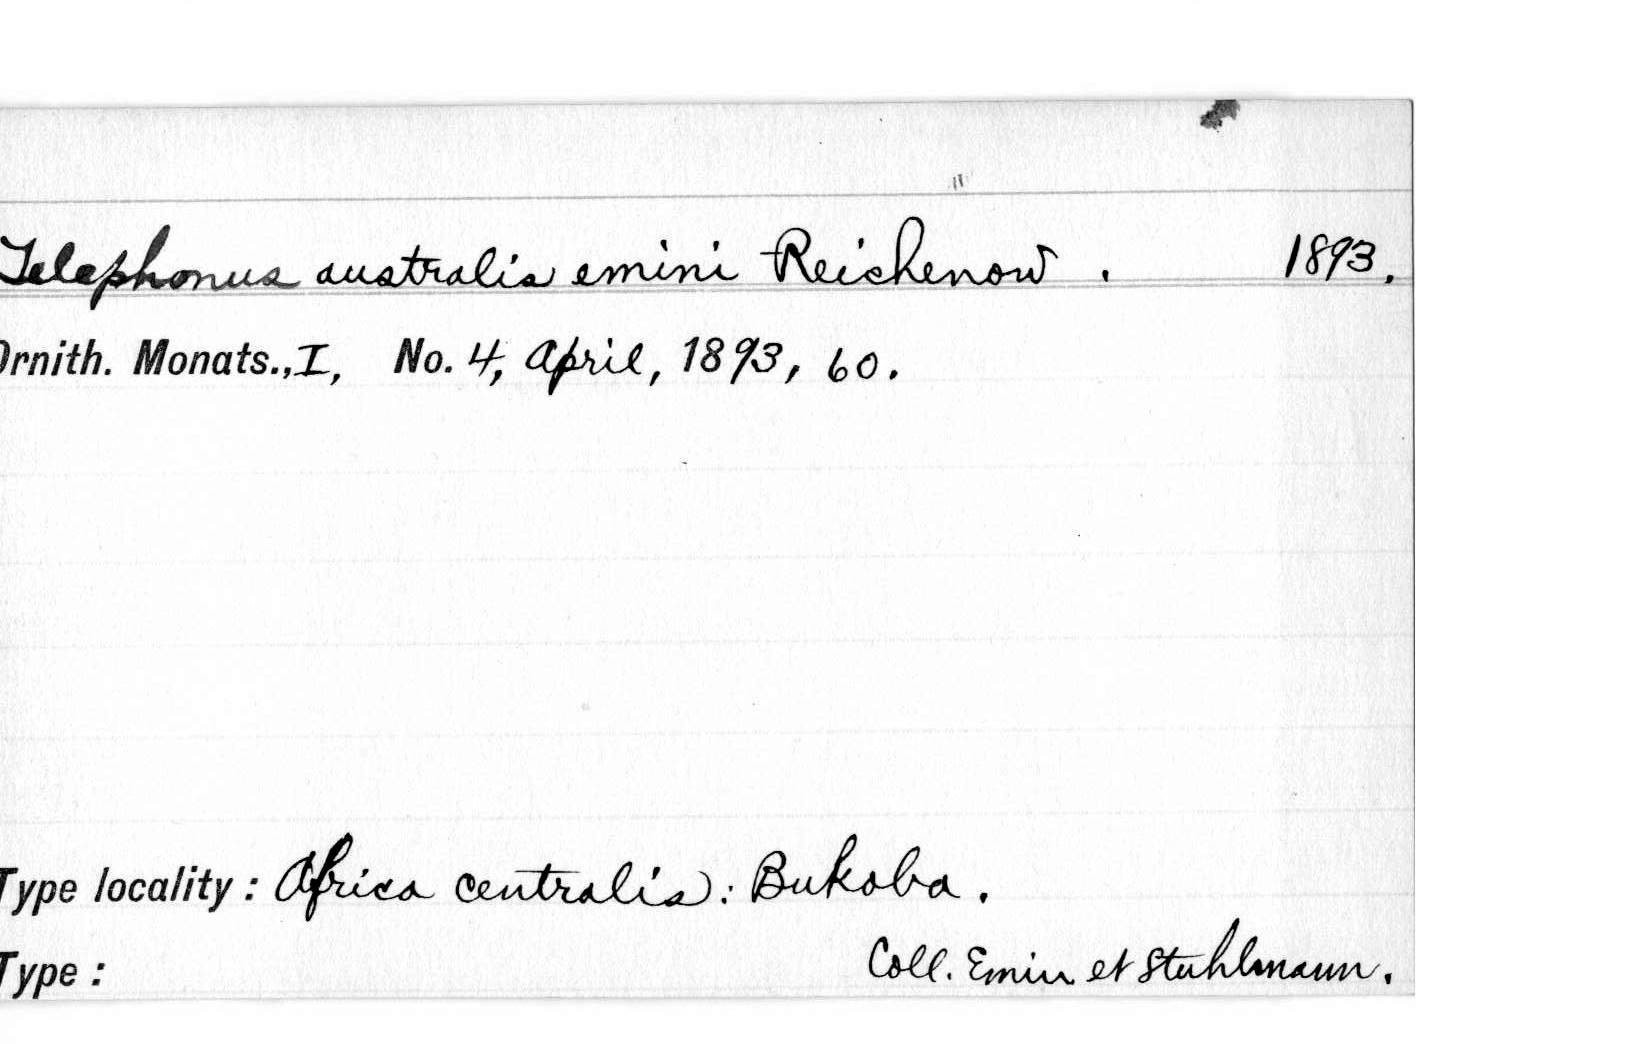 Telephonus australis emini Reichenow . 1893.
Ornith. Monats., I, No. 4, April, 1893, 60.
Type locality : Africa centralis : Bukoba .
Type : Coll. Emin et Stuhlmann.